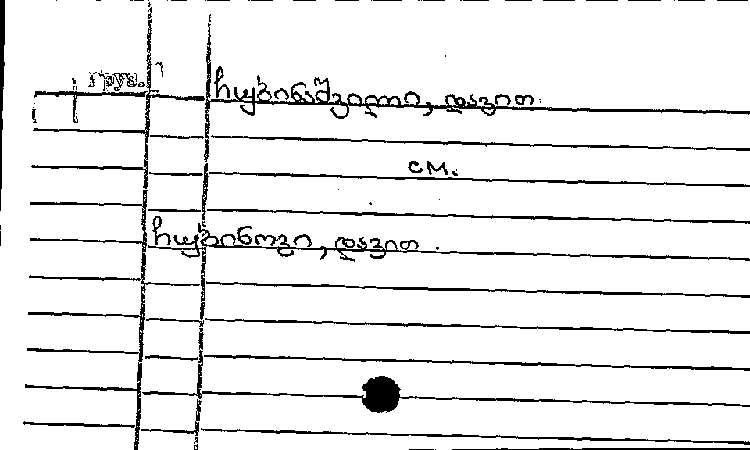 Груз.
ჩუბინაშვილი, დავით.
см.
ჩუბინოვი, დავით.